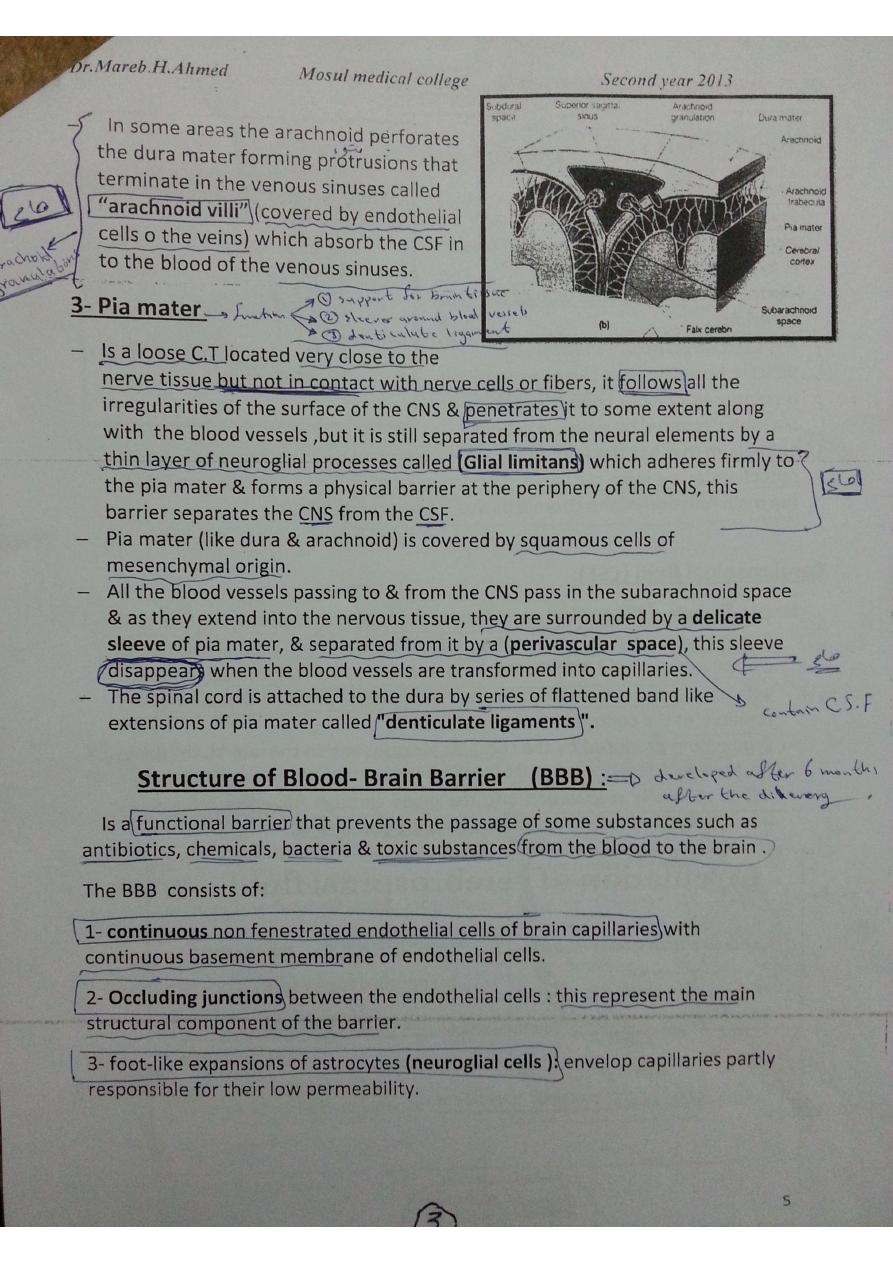 Dr.Mareb.H.Ahmed Mosul medical college Second year 2013
In some areas the arachnoid perforates
the dura mater forming protrusions that
terminate in the venous sinuses called
“arachnoid villi” (covered by endothelial
cells o the veins) which absorb the CSF in
to the blood of the venous sinuses.
Subdural space
Superior sagittal sinus
Arachnoid granulation
Dura mater
Arachnoid
Arachnoid trabecula
Pia mater
Cerebral cortex
Subarachnoid space
(b)
Falx cerebri
3- Pia mater function
① support for brain tissue
② sleeves around blood vessels
③ denticulate ligament
– Is a loose C.T located very close to the
nerve tissue but not in contact with nerve cells or fibers, it follows all the
irregularities of the surface of the CNS & penetrates it to some extent along
with the blood vessels ,but it is still separated from the neural elements by a
thin layer of neuroglial processes called (Glial limitans) which adheres firmly to
the pia mater & forms a physical barrier at the periphery of the CNS, this
barrier separates the CNS from the CSF.
– Pia mater (like dura & arachnoid) is covered by squamous cells of
mesenchymal origin.
– All the blood vessels passing to & from the CNS pass in the subarachnoid space
& as they extend into the nervous tissue, they are surrounded by a delicate
sleeve of pia mater, & separated from it by a (perivascular space), this sleeve
disappear when the blood vessels are transformed into capillaries.
contain C.S.F
– The spinal cord is attached to the dura by series of flattened band like
extensions of pia mater called "denticulate ligaments".
Structure of Blood- Brain Barrier (BBB) : developed after 6 months
after the
Is a functional barrier that prevents the passage of some substances such as
antibiotics, chemicals, bacteria & toxic substances from the blood to the brain .
The BBB consists of:
1- continuous non fenestrated endothelial cells of brain capillaries with
continuous basement membrane of endothelial cells.
2- Occluding junctions between the endothelial cells : this represent the main
structural component of the barrier.
3- foot-like expansions of astrocytes (neuroglial cells ): envelop capillaries partly
responsible for their low permeability.
5
3